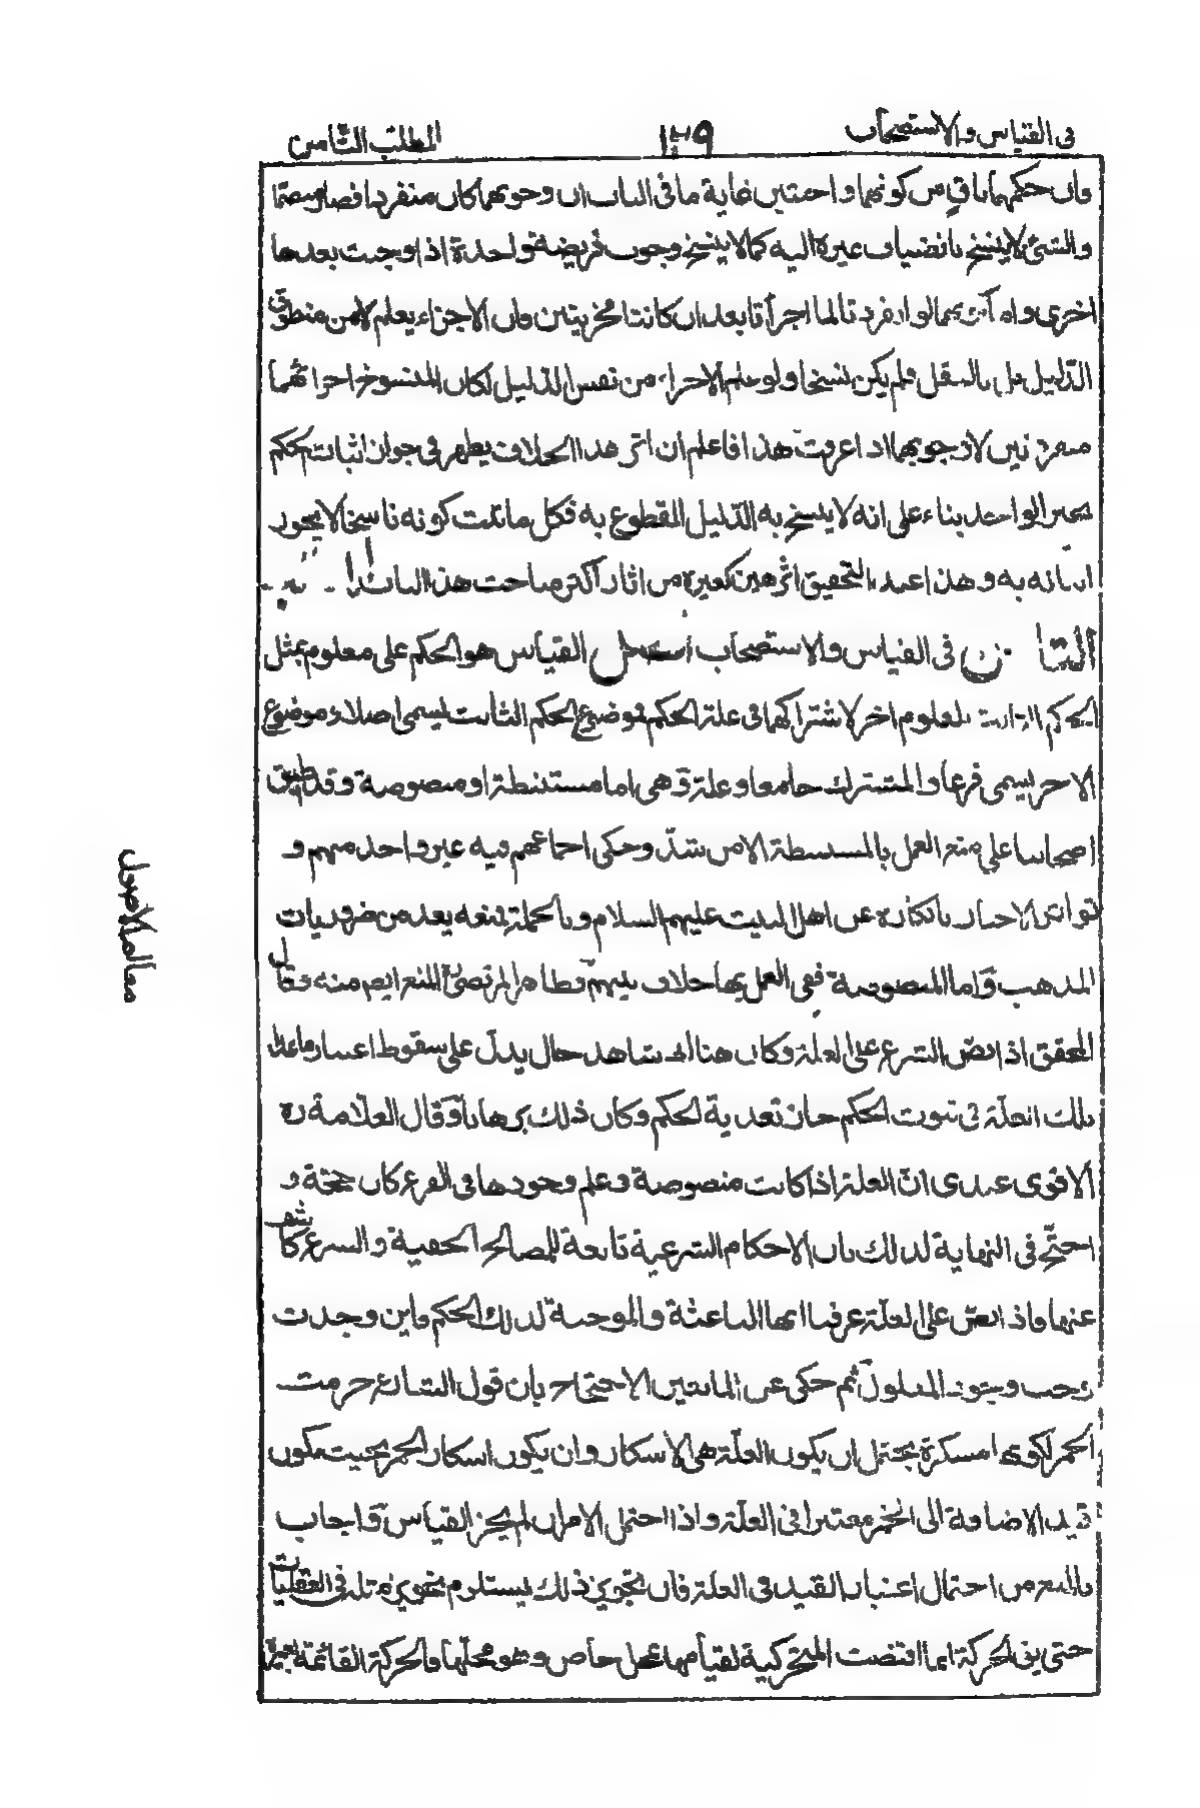 فى القياس والاستصحاب
١٣٩
المطلب الثامن
وان حكمهما باق من كونهما واجبتين غاية ما فى الباب ان وجوبهما كان منفردا فصار منضما
والشئ لا ينسخ بانضياف غيره اليه كما لا ينسخ وجوب فريضة واحدة اذا وجبت بعدها
اخرى واما كونهما لو انفردتا لما اجزأتا بعد ان كانتا مجزيتين فان الاجزاء يعلم لا من منطوق
الدّليل بل بالعقل فلم يكن نسخا ولو علم الاجزاء من نفس الدليل لكان المنسوخ اجزائهما
منفردتين لا وجوبهما اذا عرفت هذا فاعلم ان اثر هذا الخلاف يظهر فى جواز اثبات الحكم
بخبر الواحد بناء على انه لا ينسخ به الدّليل المقطوع به فكل ما ثبت كونه ناسخا لا يجوز
اثباته به وهذا عند التحقيق اثر هين كغيره من اثار اكثر مباحث هذا الباب
الثا من فى القياس والاستصحاب اصل القياس هو الحكم على معلوم بمثل
الحكم الثابت لمعلوم اخر لاشتراكهما فى علة الحكم فموضع الحكم الثابت يسمى اصلا وموضوع
الاخر يسمى فرعا والمشترك جامعا وعلة وهى اما مستنبطة او منصوصة وقد اطبق
اصحابنا على منع العمل بالمستنبطة الا من شذّ وحكى اجماعهم فيه غير واحد منهم و
تواتر الاخبار بانكاره عن اهل البيت عليهم السلام وبالجملة فمنعه يعد من ضروريات
المذهب واما المنصوصة ففى العمل بها خلاف بينهم فظاهر المرتضى ره المنع ايضم منه وقال
المحقق اذا نصّ الشرع على العلة وكان هناك شاهد حال يدلّ على سقوط اعتبار ما عدا
تلك العلّة فى ثبوت الحكم جاز تعدية الحكم وكان ذلك برهانا وقال العلّامة ره
الاقوى عندى انّ العلة اذا كانت منصوصة وعلم وجودها فى الفرع كان حجة و
احتجّ فى النهاية لذلك بان الاحكام الشرعية تابعة للمصالح الخفية والشرع كاشف
عنها فاذا نصّ على العلة عرفنا انها الباعثة والموجبة لذلك الحكم فاين وجدت
وجب وجود المعلول ثم حكى عن المانعين الاحتجاج بان قول الشارع حرمت
الخمر لكونها مسكرة يحتمل ان يكون العلّة هى الاسكار وان يكون اسكار الخمر بحيث يكون
قيد الاضافة الى الخمر معتبرا فى العلّة واذا احتمل الامران لم يجز القياس واجاب
بالمنع من احتمال اعتبار القيد فى العلة فان تجويز ذلك يستلزم تجويز مثله فى العقليات
حتى يق الحركة انما اقتضت المتحركية لقيامها بمحل خاص وهو محلّها فالحركة القائمة بغيره
معالم الاصول